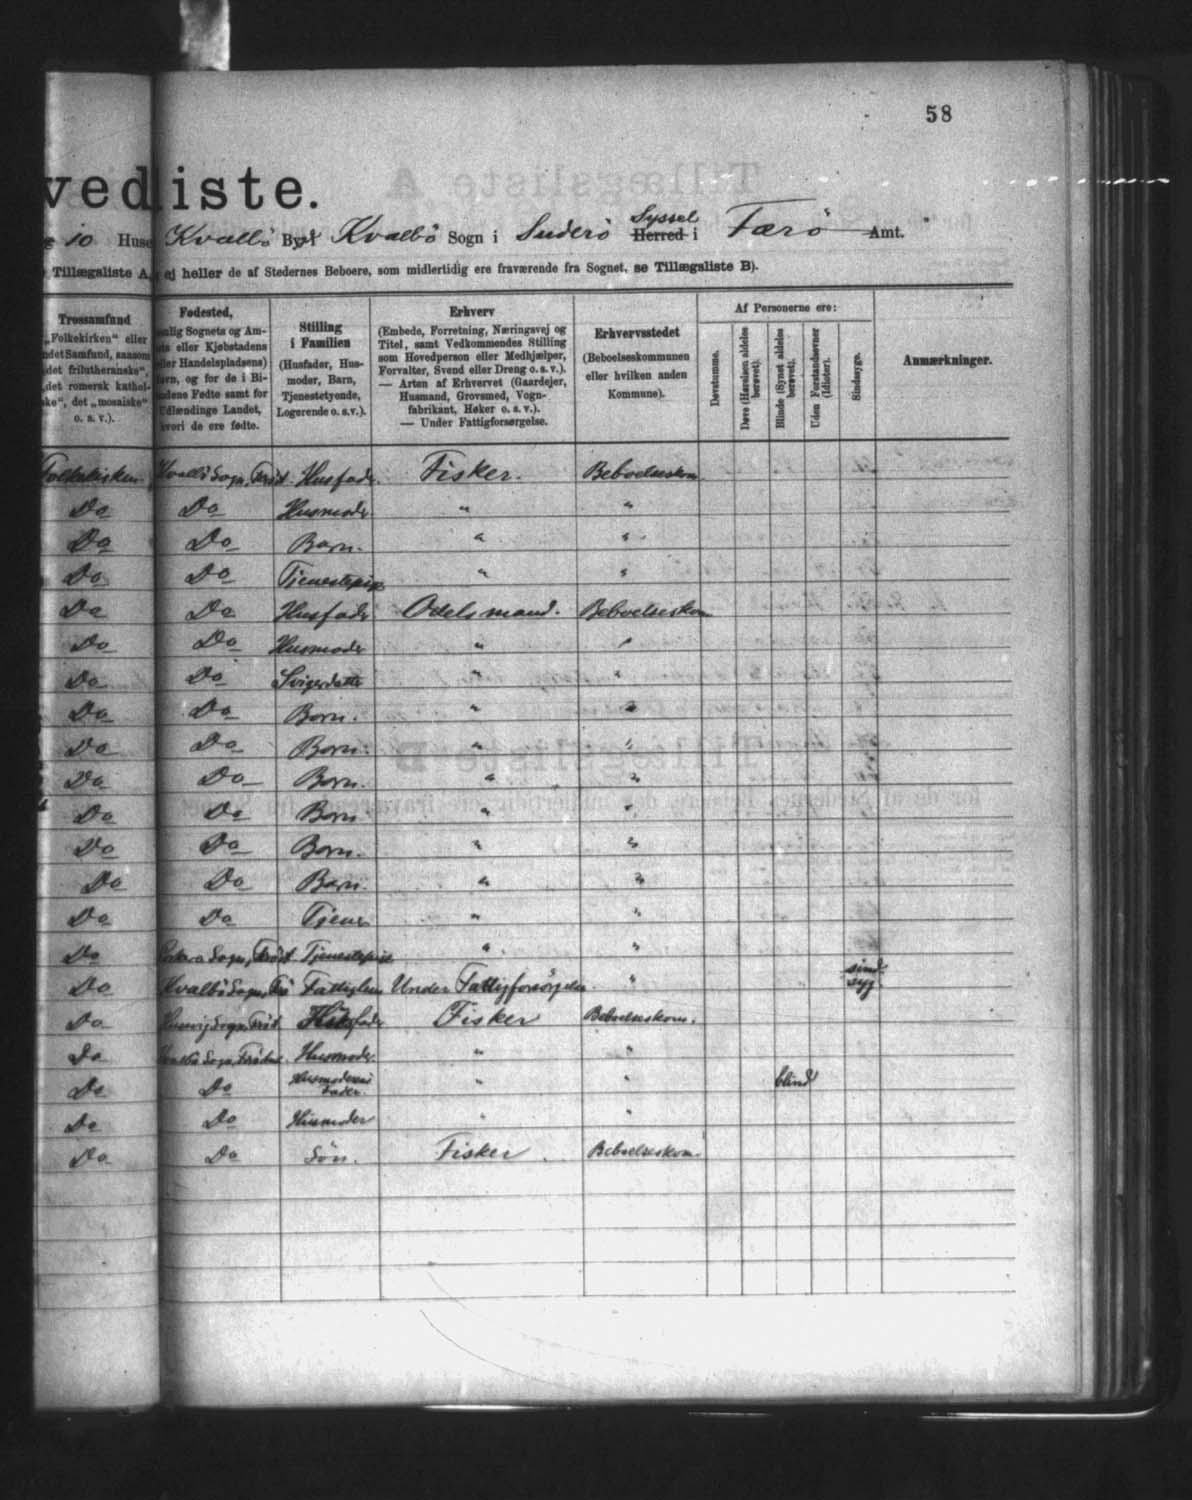 58
vedliste.
10 Huse Kvalbø By Kvalbø Sogn i Suderø Syssel Herred i Færø Amt.
Tillægsliste A, ej heller de af Stedernes Beboere, som midlertidig ere fraværende fra Sognet, se Tillægsliste B).
Trossamfund
„Folkekirken“ eller
ndet Samfund, saasom
det frilutheranske“,
„det romersk kathol-
ske“, det „mosaiske“
o. s. v.).
Fødested,
nemlig Sognets og Am-
ts eller Kjøbstadens
eller Handelspladsens)
Navn, og for de i Bi-
ndene Fødte samt for
Udlændinge Landet,
hvori de ere fødte.
Stilling
i Familien
(Husfader, Hus-
moder, Barn,
Tjenestetyende,
Logerende o. s. v.).
Erhverv
(Embede, Forretning, Næringsvej og
Titel, samt Vedkommendes Stilling
som Hovedperson eller Medhjælper,
Forvalter, Svend eller Dreng o. s. v.).
— Arten af Erhvervet (Gaardejer,
Husmand, Grovsmed, Vogn-
fabrikant, Høker o. s. v.).
— Under Fattigforsørgelse.
Erhvervsstedet
(Beboelseskommunen
eller hvilken anden
Kommune).
Af Personerne ere:
Døvstumme.
Døve (Hørelsen aldeles
berøvet).
Blinde (Synet aldeles
berøvet).
Uden Forstandsevner
(Idioter).
Sindssyge.
Anmærkninger.
Folkekirken Kvalbø Sogn, Færø Husfader. Fisker. Beboelseskom
Do Do Husmoder " "
Do Do Barn. " "
Do Do Tjenestepige " "
Do Do Husfader Odelsmand. Beboelseskom
Do Do Husmoder " "
Do Do Svigerdatter " "
Do Do Barn. " "
Do Do Barn. " "
Do Do Barn. " "
Do Do Barn " "
Do Do Barn. " "
Do Do Barn. " "
Do Do Tjener " "
Do Sogn, Færø Tjenestepige " "
Do Kvalbø Sogn, Færø Fattiglem Under Fattigforsørgelse. " sind-
syg.
Do Sogn, Færø Husfader Fisker Beboelseskom.
Do Kvalbø Sogn, Færø Husmoder. " "
Do Do Husmoderens
Fader. " " blind
Do Do Husmoder " "
Do Do Søn. Fisker. Beboelseskom.